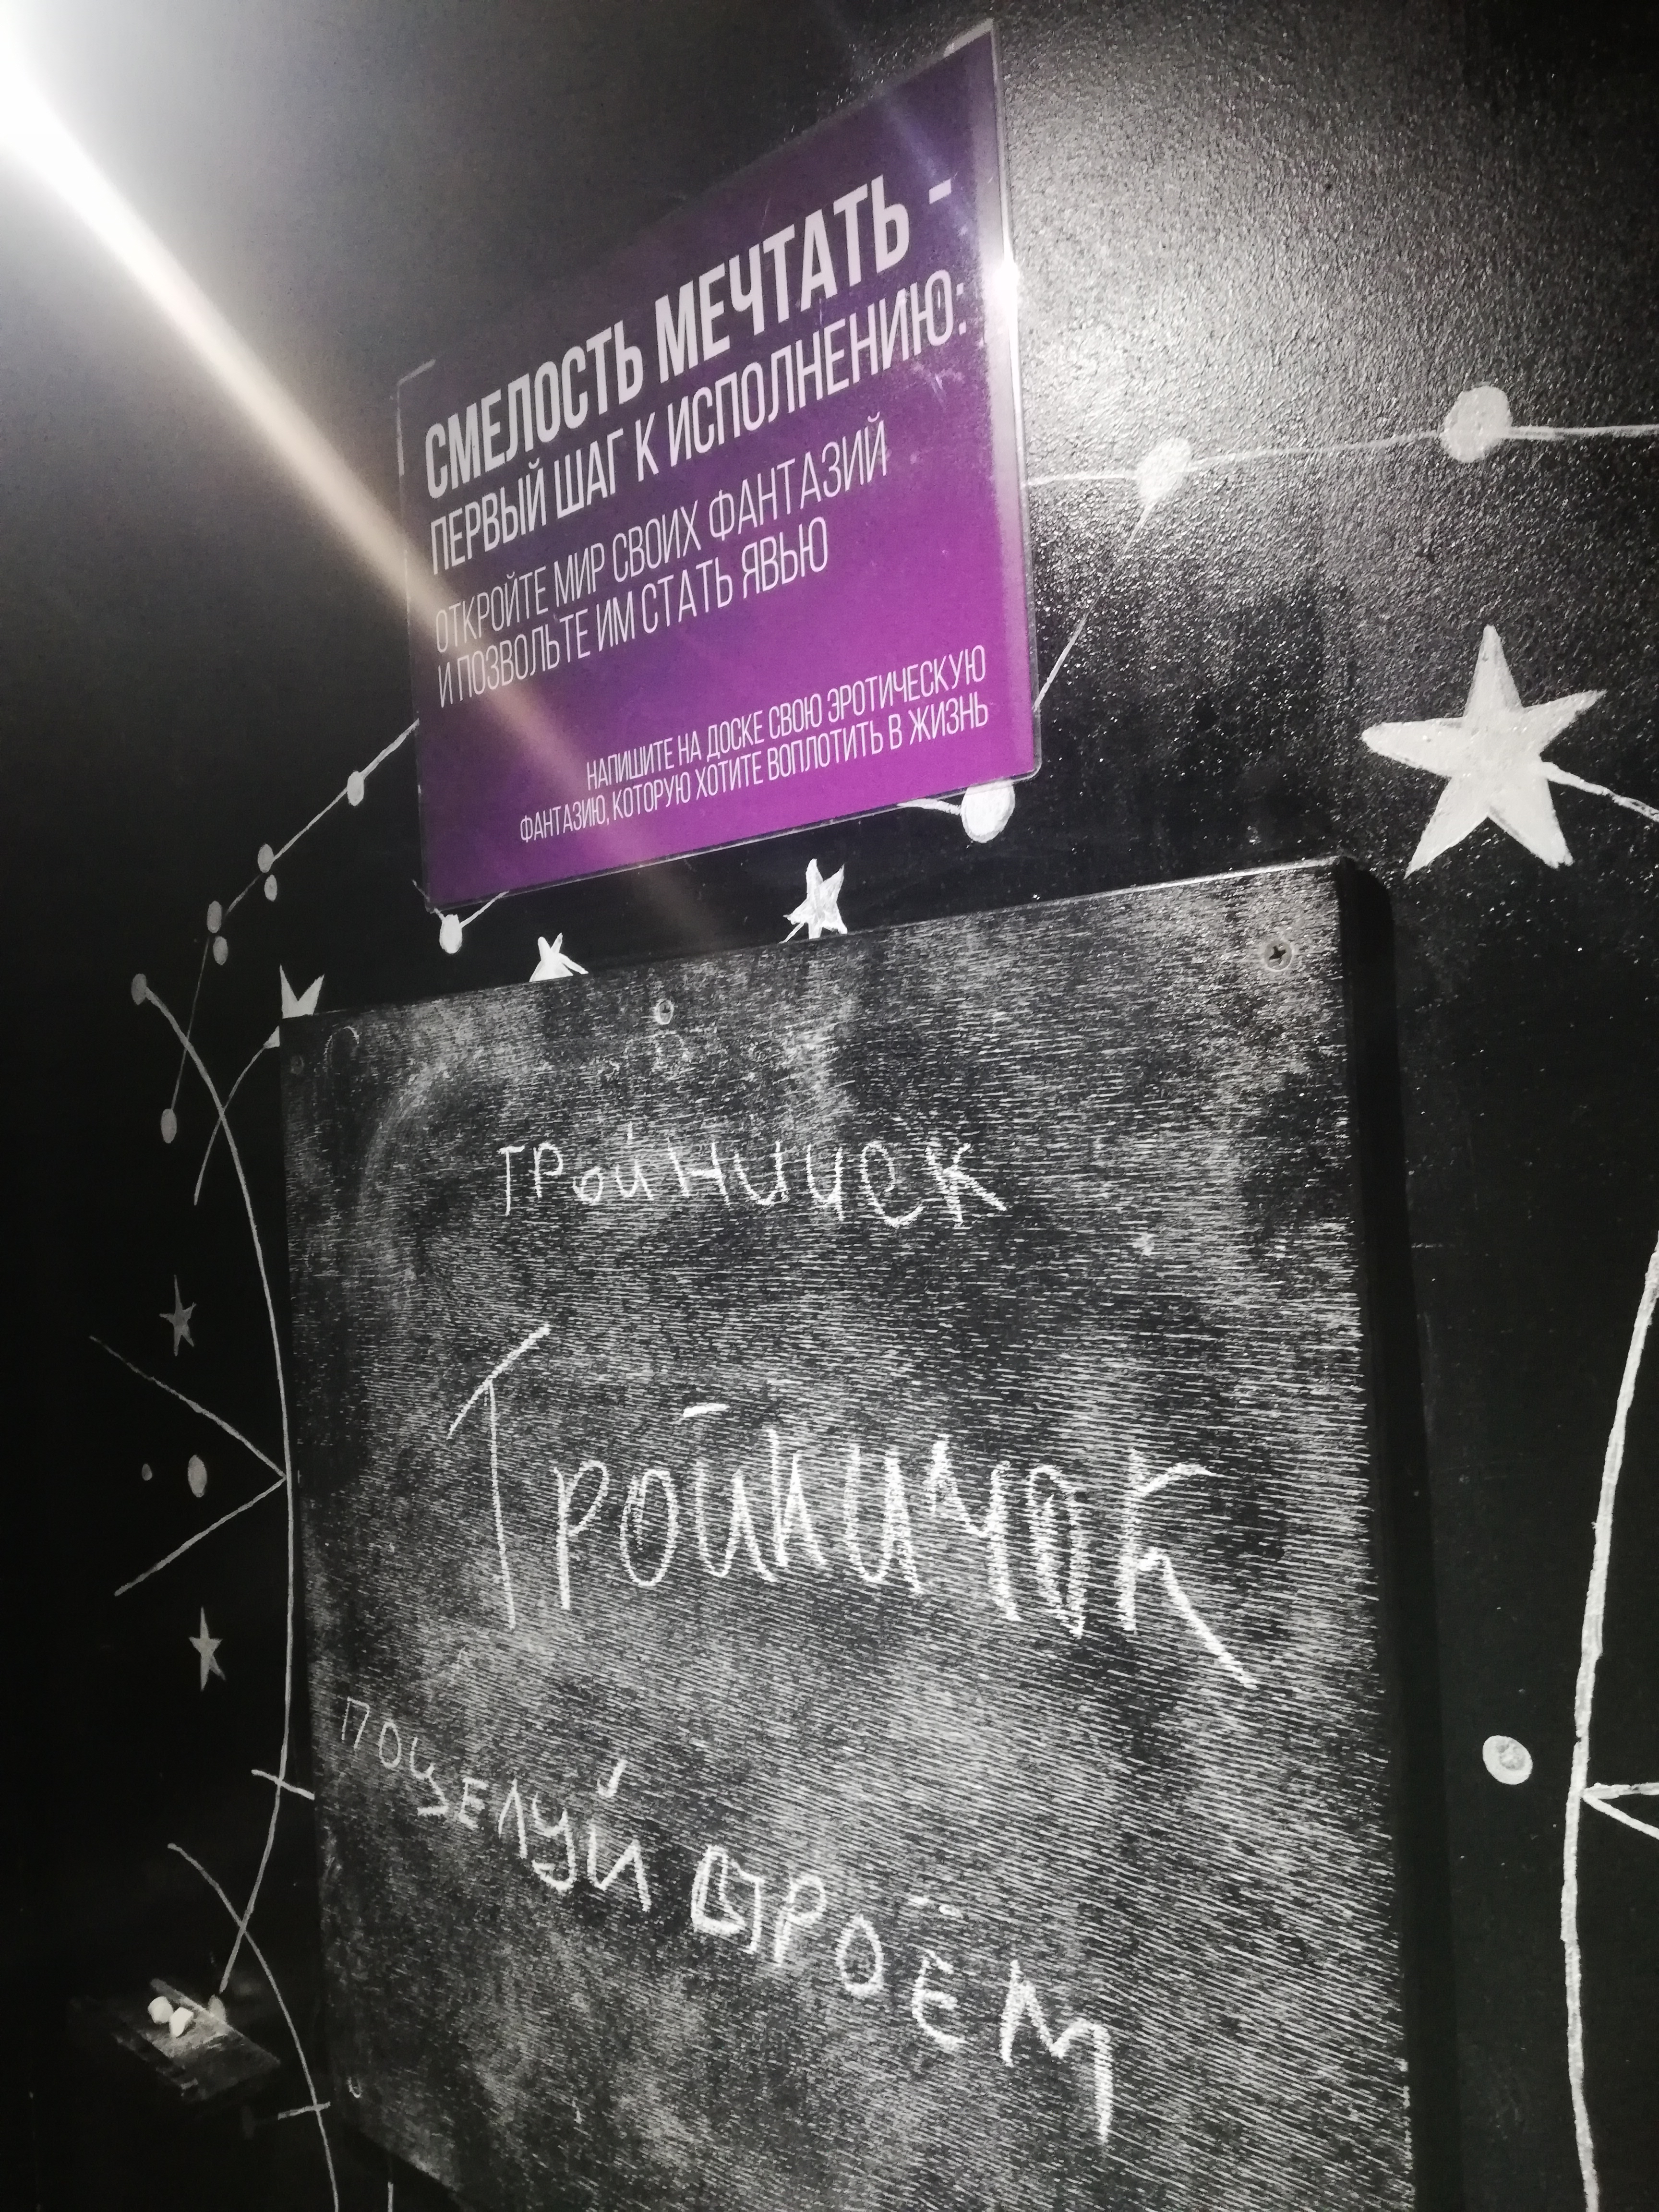 СМЕЛОСТЬ МЕЧТАТЬ -
ПЕРВЫЙ ШАГ К ИСПОЛНЕНИЮ:
ОТКРОЙТЕ МИР СВОИХ ФАНТАЗИЙ
И ПОЗВОЛЬТЕ ИМ СТАТЬ ЯВЬЮ
НАПИШИТЕ НА ДОСКЕ СВОЮ ЭРОТИЧЕСКУЮ
ФАНТАЗИЮ, КОТОРУЮ ХОТИТЕ ВОПЛОТИТЬ В ЖИЗНЬ
Тройничок
поцелуй втроём